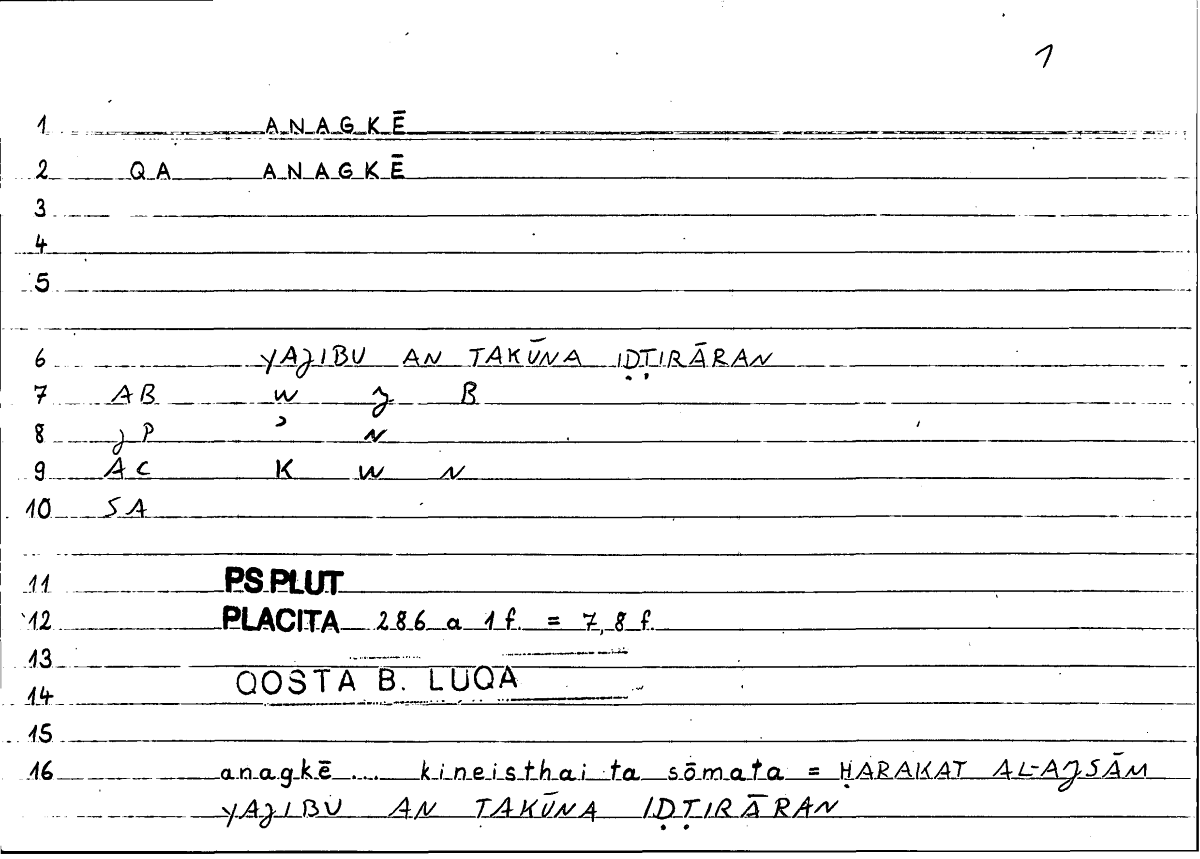 1
1 ANAGKĒ
2 QA ANAGKĒ
3
4
5
6 YAJIBU AN TAKŪNA IḌṬIRĀRAN
7 AB W J B
8 JP ʾ N
9 AC K W N
10 SA
11 PS.PLUT
12 PLACITA 286 a 1 f. = 7,8 f.
13
14 QOSTA B. LUQA
15
16 anagkē .... kineisthai ta sōmata = ḤARAKAT AL-AJSĀM
YAJIBU AN TAKŪNA IḌṬIRĀRAN